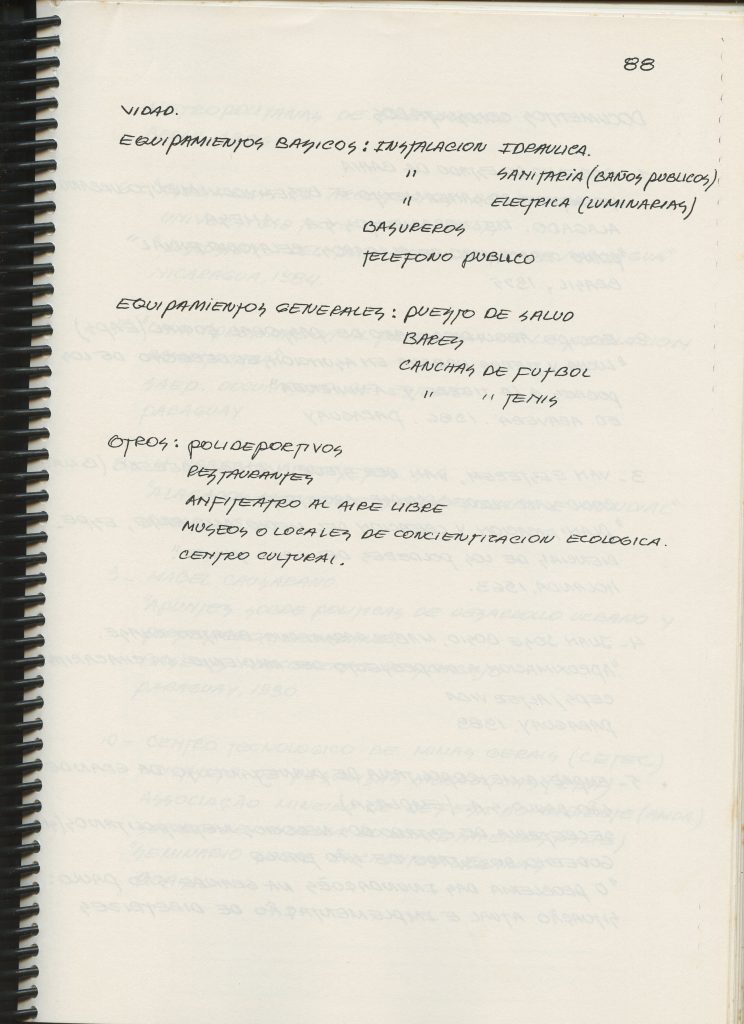 88
VIDAD.
EQUIPAMIENTOS BASICOS : INSTALACION IDRAULICA.
" SANITARIA (BAÑOS PUBLICOS)
" ELECTRICA (LUMINARIAS)
BASUREROS
TELEFONO PUBLICO
EQUIPAMIENTOS GENERALES : PUESTO DE SALUD
BARES
CANCHAS DE FUTBOL
" " TENIS
OTROS : POLIDEPORTIVOS
RESTAURANTES
ANFITEATRO AL AIRE LIBRE
MUSEOS O LOCALES DE CONCIENTIZACION ECOLOGICA.
CENTRO CULTURAL.